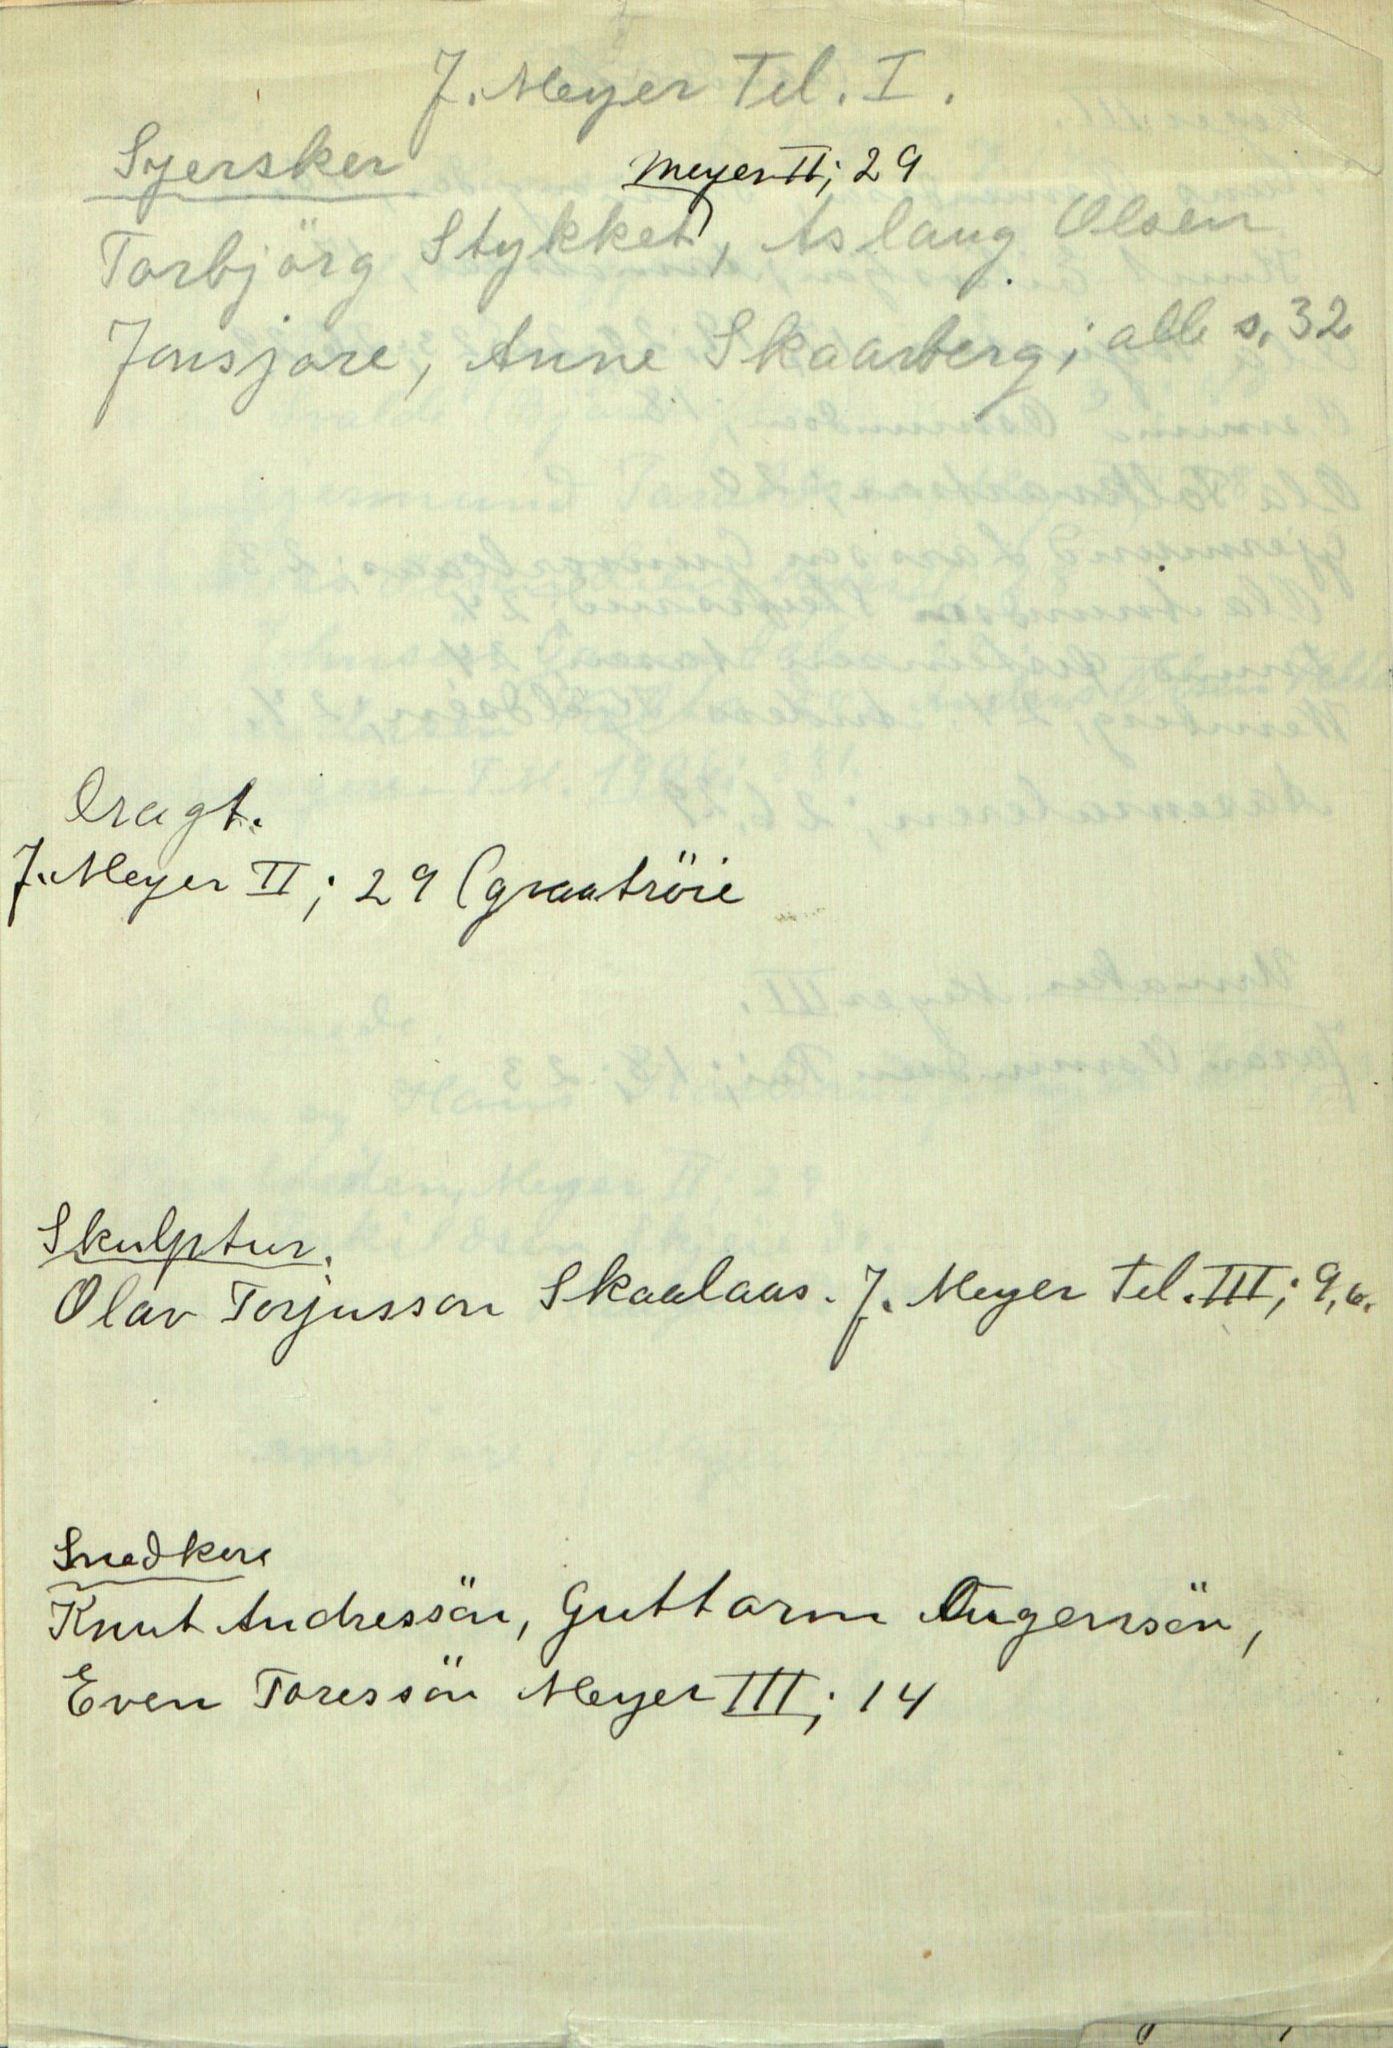 J. Meyer Tel. I.
Syersker
Meyer II; 29
Torbjörg Stykket, Aslaug Olsen
Jonsjore, Anne Skaarberg; alle s. 32
Dragt.
J. Meyer II; 29 (graatröie
Skulptur.
Olav Torjusson Skaalaas. J. Meyer Tel. III; 9,6.
Snedkere
Knut Andressön, Guttorm Augensön,
Even Toressön Meyer III; 14